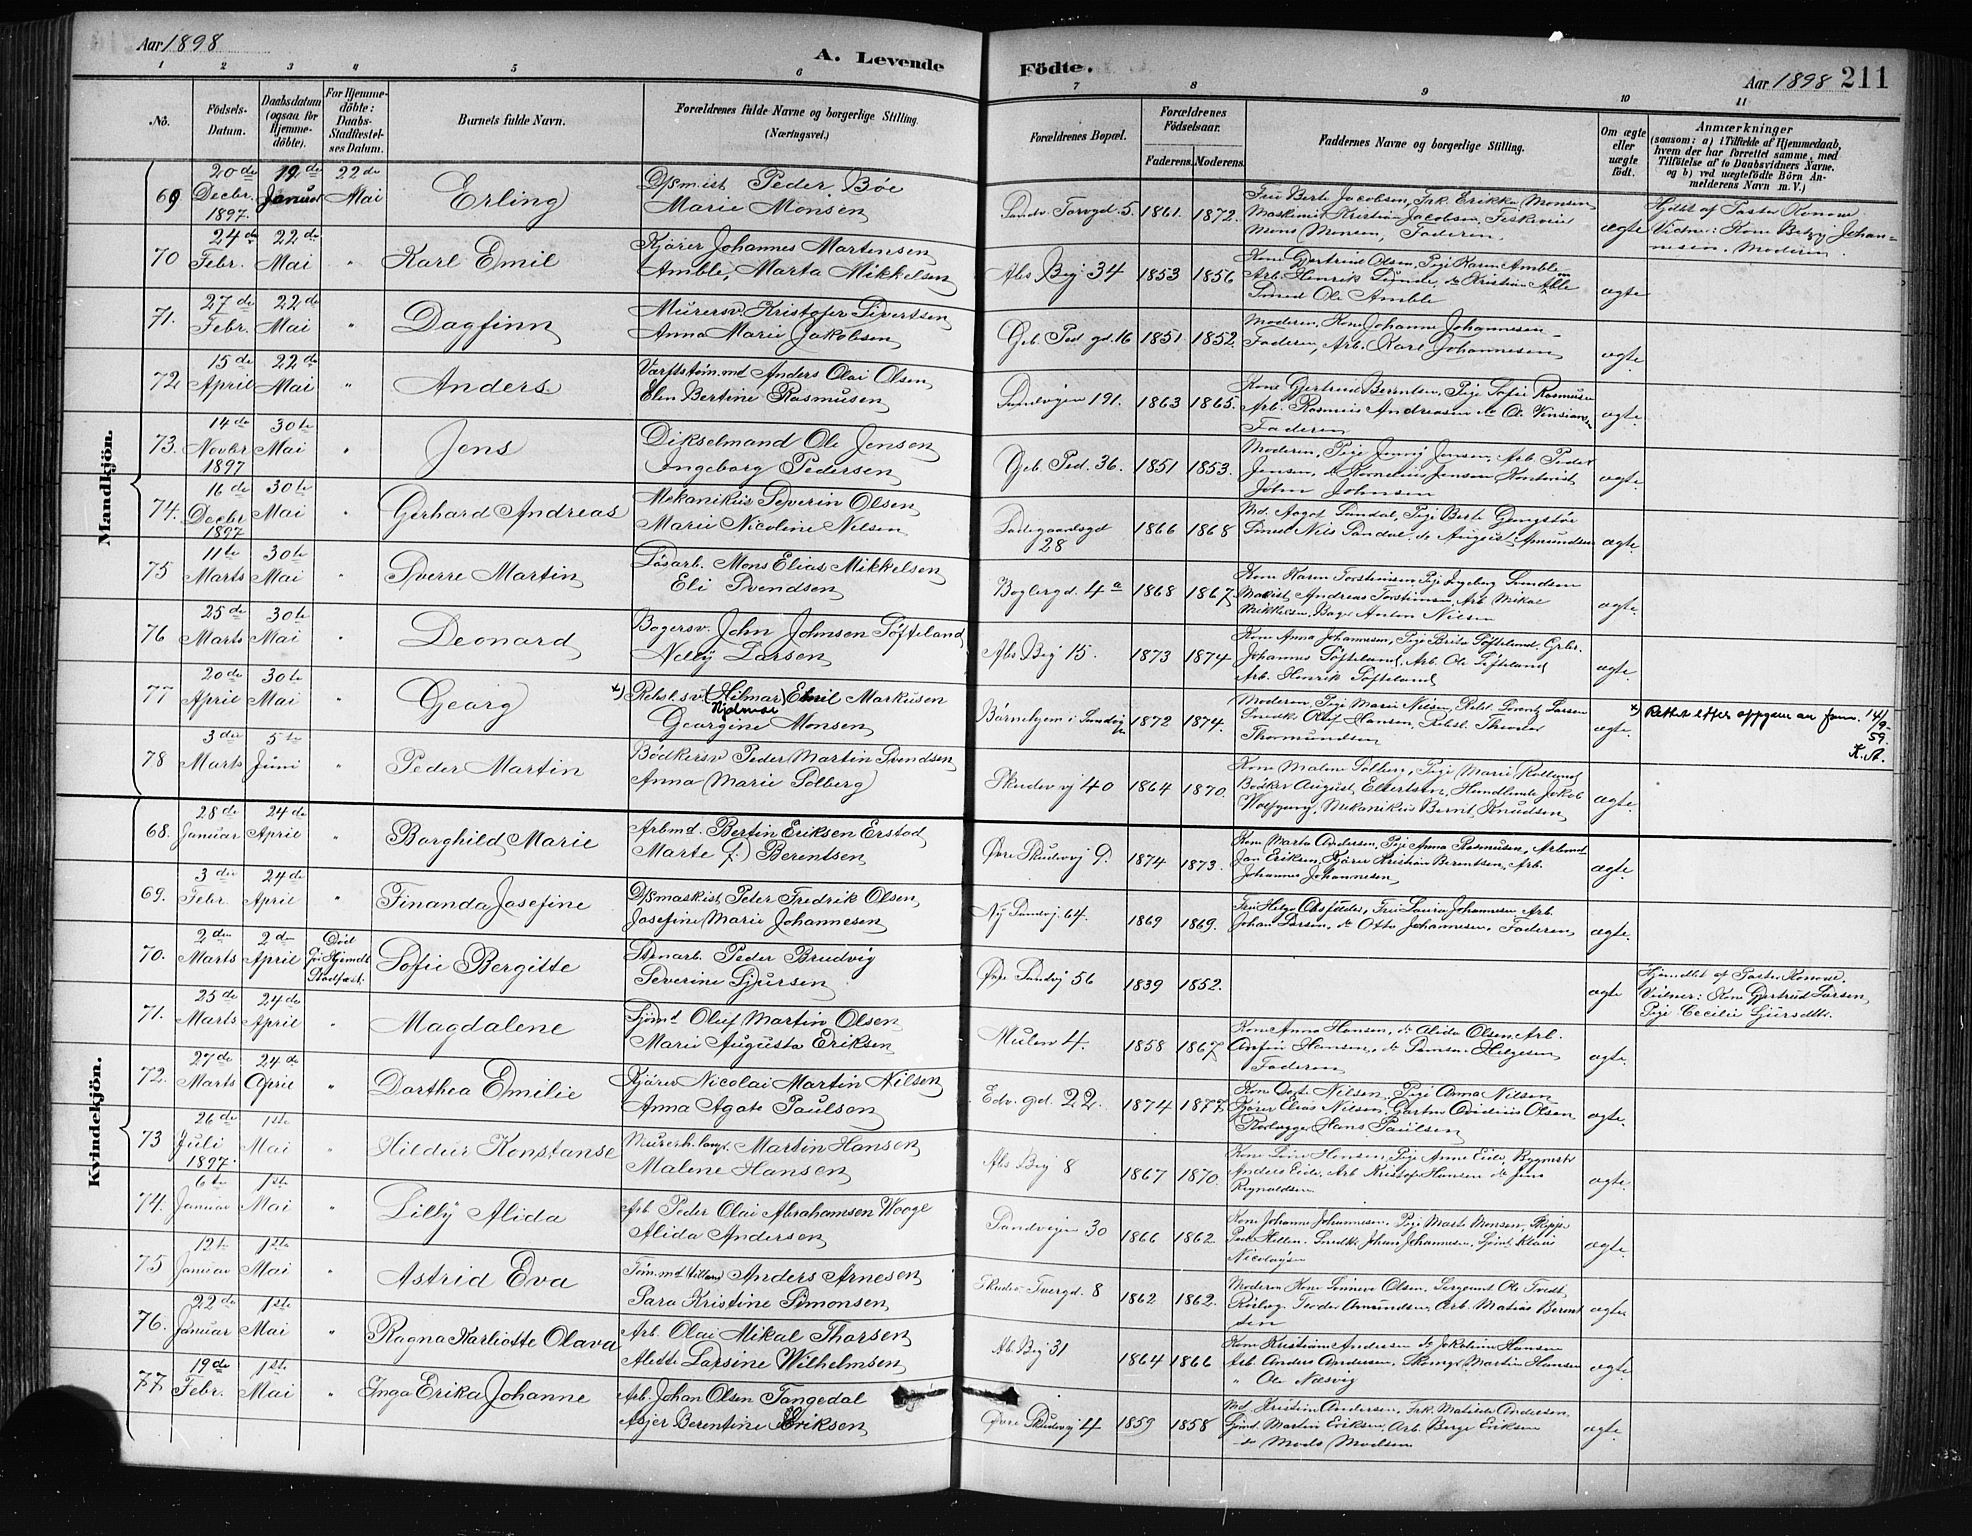 Aar 1898
A. Levende Födte.
Aar 1898 211
1 2 3 4 5 6 7 8 9 10 11
No.
Födsels-Datum.
Daabsdatum (ogsaa for Hjemme-döbte).
For Hjemme-döbte: Daabs-Stadfæstel-ses Datum.
Barnets fulde Navn.
Forældrenes fulde Navne og borgerlige Stilling. (Næringsvei.)
Forældrenes Bopæl.
Forældrenes Födselsaar.
Faderens. Moderens.
Faddernes Navne og borgerlige Stilling.
Om ægte eller uægte födt.
Anmærkninger (saasom: a) i Tilfælde af Hjemmedaab, hvem der har forrettet samme, med Tilföielse af to Daabsvidners Navne. og b) ved uægtefödte Börn An-melderens Navn m. V.)
Mandkjön.
69 20de Decbr. 1897. 19de Januar 22de Mai Erling
Peder Böe
Marie Monsen
Sandv. Torvgd. 5. 1861. 1872.
Fru Berte Jacobsen, Frk. Erikka Monsen
Maskinist Kristian Jacobsen,
Mons Monsen, Faderen.
ægte
Hjdbt af Pastor Konow
Vidner: Kone Betzy Johan-
nesen, Moderen.
70 24de Febr. 22de Mai " Karl Emil
Kjörer Johannes Martensen
Amble, Marta Mikkelsen
Abs Bgj 34 1853 1856
Kone Gjertrud Olsen, Pige Karen Amble
Arb. Henrik
Smed Ole Amble
ægte
71. 27de Febr. 22de Mai " Dagfinn
Murersv. Kristofer Sivertsen
Anna Marie Jakobsen
Geb. Ped gd. 16 1851 1852.
Moderen, Kone Johanne Johannesen
Faderen, Arb. Karl Johannesen
ægte
72 15de April 22de Mai " Anders
Værftstöm.md Anders Olai Olsen
Elen Bertine Rasmusen
Sandvigen 191. 1863 1865.
Kone Gjertrud Berntsen, Pige Sofie Rasmusen
Arb. Rasmus Andreasen
Faderen
ægte
73. 14de Novbr. 1897 30te Mai " Jens
Ole Jensen
Ingeborg Pedersen
Geb. Ped. 36. 1851 1853.
Moderen, Pige Jenny Jensen, Arb. Peder
Jensen, do Kornelius Jensen, Kontorist
John Johnsen
ægte
74. 16de Decbr. 1897 30te Mai " Gerhard Andreas
Mekanikus Severin Olsen
Marie Nicoline Nilsen
Ladegaardsgd 28 1866 1868
Md. Aagot Sandal, Pige Berte
Smed Nils Sandal, do August Amundsen
ægte
75 11te Marts 30te Mai " Sverre Martin
Lösarb. Mons Elias Mikkelsen
Eli Svendsen
4a 1868 1867
Kone Karen Torstensen, Pige Ingeborg Svendsen
Andreas Torstensen, Arb. Mikal
Mikkelsen, Bager Anton Nilsen
ægte
76 25de Marts 30te Mai " Leonard
Bagersv. John Johnsen Söfteland
Nelly Larsen
Abs Bgj 15. 1873 1874
Kone Anna Johannesen, Pige Brita Söfteland,
Johannes Söfteland, Arb. Ole Söfteland
Arb. Henrik Söfteland
ægte
77 20de April 30te Mai " Georg
x) Rebslsv. (Hilmar) Emil Markusen
Hjelmar
Georgine Monsen
Börnehjem i Sandvig 1872 1874.
Moderen, Pige Marie Nilsen, Lorentz Larsen
Snedk. Olaf Hansen, Rebsl. Theodor
Thormundsen
ægte.
x) Rettet efter oppgave av fam. 14/9-59. K.A.
78 3die Marts 5te Juni " Peder Martin
Bödkersv. Peder Martin Svendsen
Anna Marie Solberg
Skudevj 40 1864 1870.
Kone Malene Solberg, Pige Marie
Bödker August Elbertsen, Handlende Jakob
Wolfgang, Mekanikus Bernt Knudsen
ægte
Kvindekjön.
68. 28de Januar 24de April " Borghild Marie
Arbmd. Bertin Eriksen Erstad
Marte Berentsen
Övre Skudevj 9. 1874 1873.
Kone Marta Andersen, Pige Anna Rasmusen, Arbmd
Jan Eriksen, Kjörer Kristian Berentsen, Arb.
Johannes Johannesen
ægte.
69. 3die Febr. 24de April " Finanda Josefine
Peter Fredrik Olsen
Josefine Marie Johannesen
Ny Sandvj. 64. 1869 1869.
Fru Laura Johannesen Arb.
Johan Larsen, do Otto Johannesen, Faderen
ægte.
70. 2den Marts 2den April Död för Hjemdb. Stadfæst. Sofie Bergitte
Stenarb. Peder Brudvig
Severine Sjursen
Övre Sandvj 56 1839 1852.
ægte
Hjemdbt af Pastor Konow.
Vidner: Kone Gjertrud Larsen
Pige Cecilie Sjursdtr.
71. 25de Marts 24de April " Magdalene
Sjömd Oluf Martin Olsen
Marie Augusta Eriksen
Mulen 4. 1858 1867
Kone Anna Hansen, do Alida Olsen Arb.
Anfin Hansen, do Samson Helgesen
Faderen
ægte.
72. 27de Marts 24de April " Dorthea Emilie
Kjörer Nicolai Martin Nilsen
Anna Agate Paulsen
Edv. gd. 22. 1874 1877.
Kone Nilsen, Pige Anna Nilsen
Kjörer Elias Nilsen, Olsen
Hans Paulsen
ægte.
73 26de Juli 1897. 1ste Mai Hildur Konstanse
Martin Hansen
Malene Hansen
Abs Bgj 8 1867 1870.
Kone Hansen, Pige Anne Eide, Bygmstr
Anders Eide, Arb Kristofer Hansen do Jens
Reynoldsen
ægte.
74. 6te Januar 1ste Mai " Lilly Alida
Arb Peder Olai Abrahamsen Wooge
Alida Andersen
Sandvigen 30 1866 1862.
Kone Johanne Johannesen, Pige Marta Monsen,
Snedk. Johan Johannesen, Sjömd Klaus
Nicolaysen
ægte.
75 12te Januar 1ste Mai " Astrid Eva
Töm.md Anders Arnesen
Sara Kristine Simonsen
Skudev. Tvergd. 8 1862 1862.
Moderen Kone Sönneve Olsen, Sergeant Ole Tvedt,
Teodor Amundsen, Arb. Matias Berent
sen
ægte.
76. 22de Januar 1ste Mai " Ragna Karliotte Olava
Arb. Olai Mikal Thorsen
Alette Larsine Wilhelmsen
Ab. Bgj 31 1864 1866
Kone Kristiane Andersen do Jakobine Hansen
Arb. Anders Andersen, Martin Hansen
" Ole Næsvig
ægte.
77. 19de Febr. 1ste Mai " Inga Erika Johanne
Arb. Johan Olsen Tangedal
Asjer Berentine Eriksen
Övre Skudevj 4 1859 1858
Md. Kristine Andersen, Frk. Matilde Andersen,
Sjömd Martin Eriksen, Arb. Berge Eriksen
do Mads Madsen
ægte.